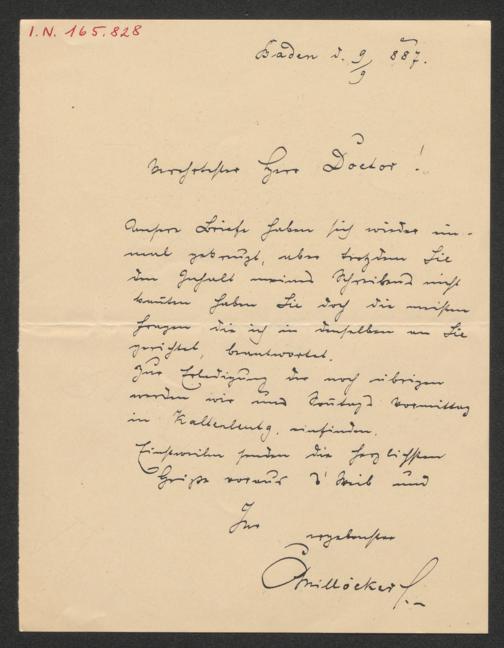 I.N. 165.828
Baden d. 9/9 887.
Verehrtester Herr Doctor!
Unsere Briefe haben sich wieder ein-
mal gekreuzt, aber trotzdem Sie
den Inhalt meines Schreibens nicht
kannten haben Sie doch die meisten
Fragen die ich in demselben an Sie
gerichtet, beantwortet.
Zur Erledigung der noch übrigen
werden wir uns Sontags Vormittag
in Kaltenleutg. einfinden.
Einstweilen senden die herzlichsten
Grüße voraus s' Weib und
Ihr
ergebenster
CMillöcker